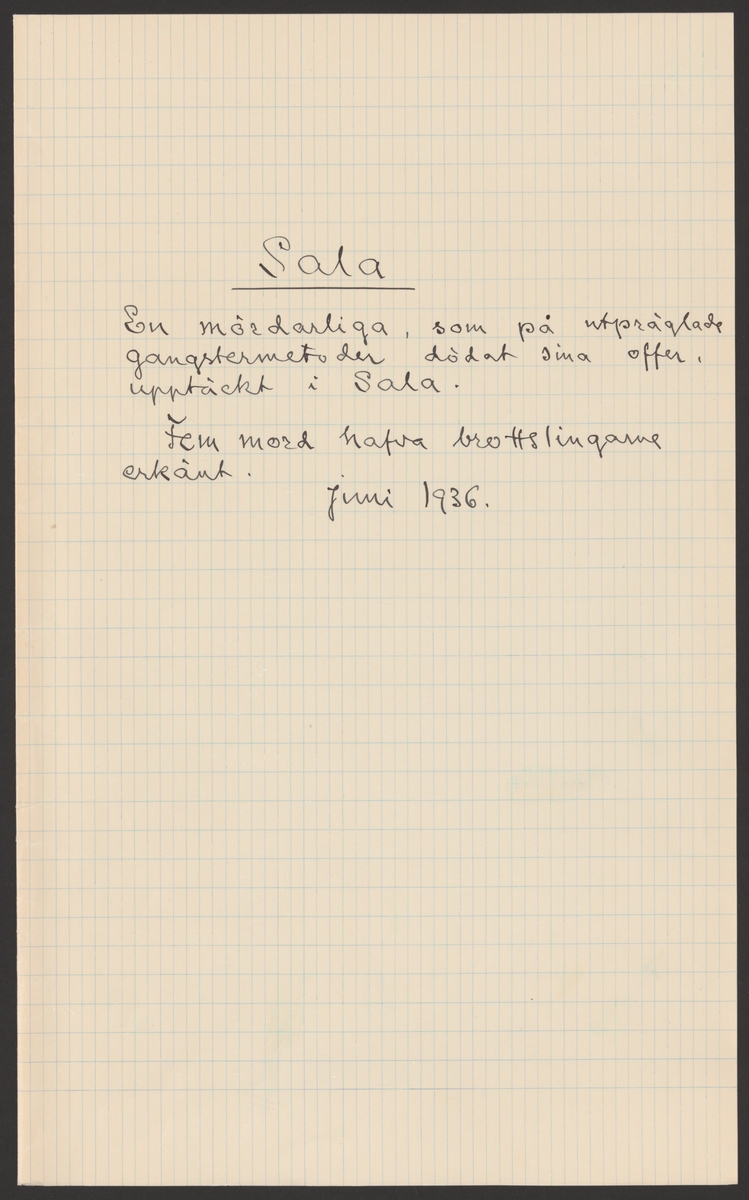 Sala
En mördarliga, som på utpräglade
gangstermetoder dödat sina offer,
upptäckt i Sala.
Fem mord hafva brottslingarne
erkänt.
Juni 1936.